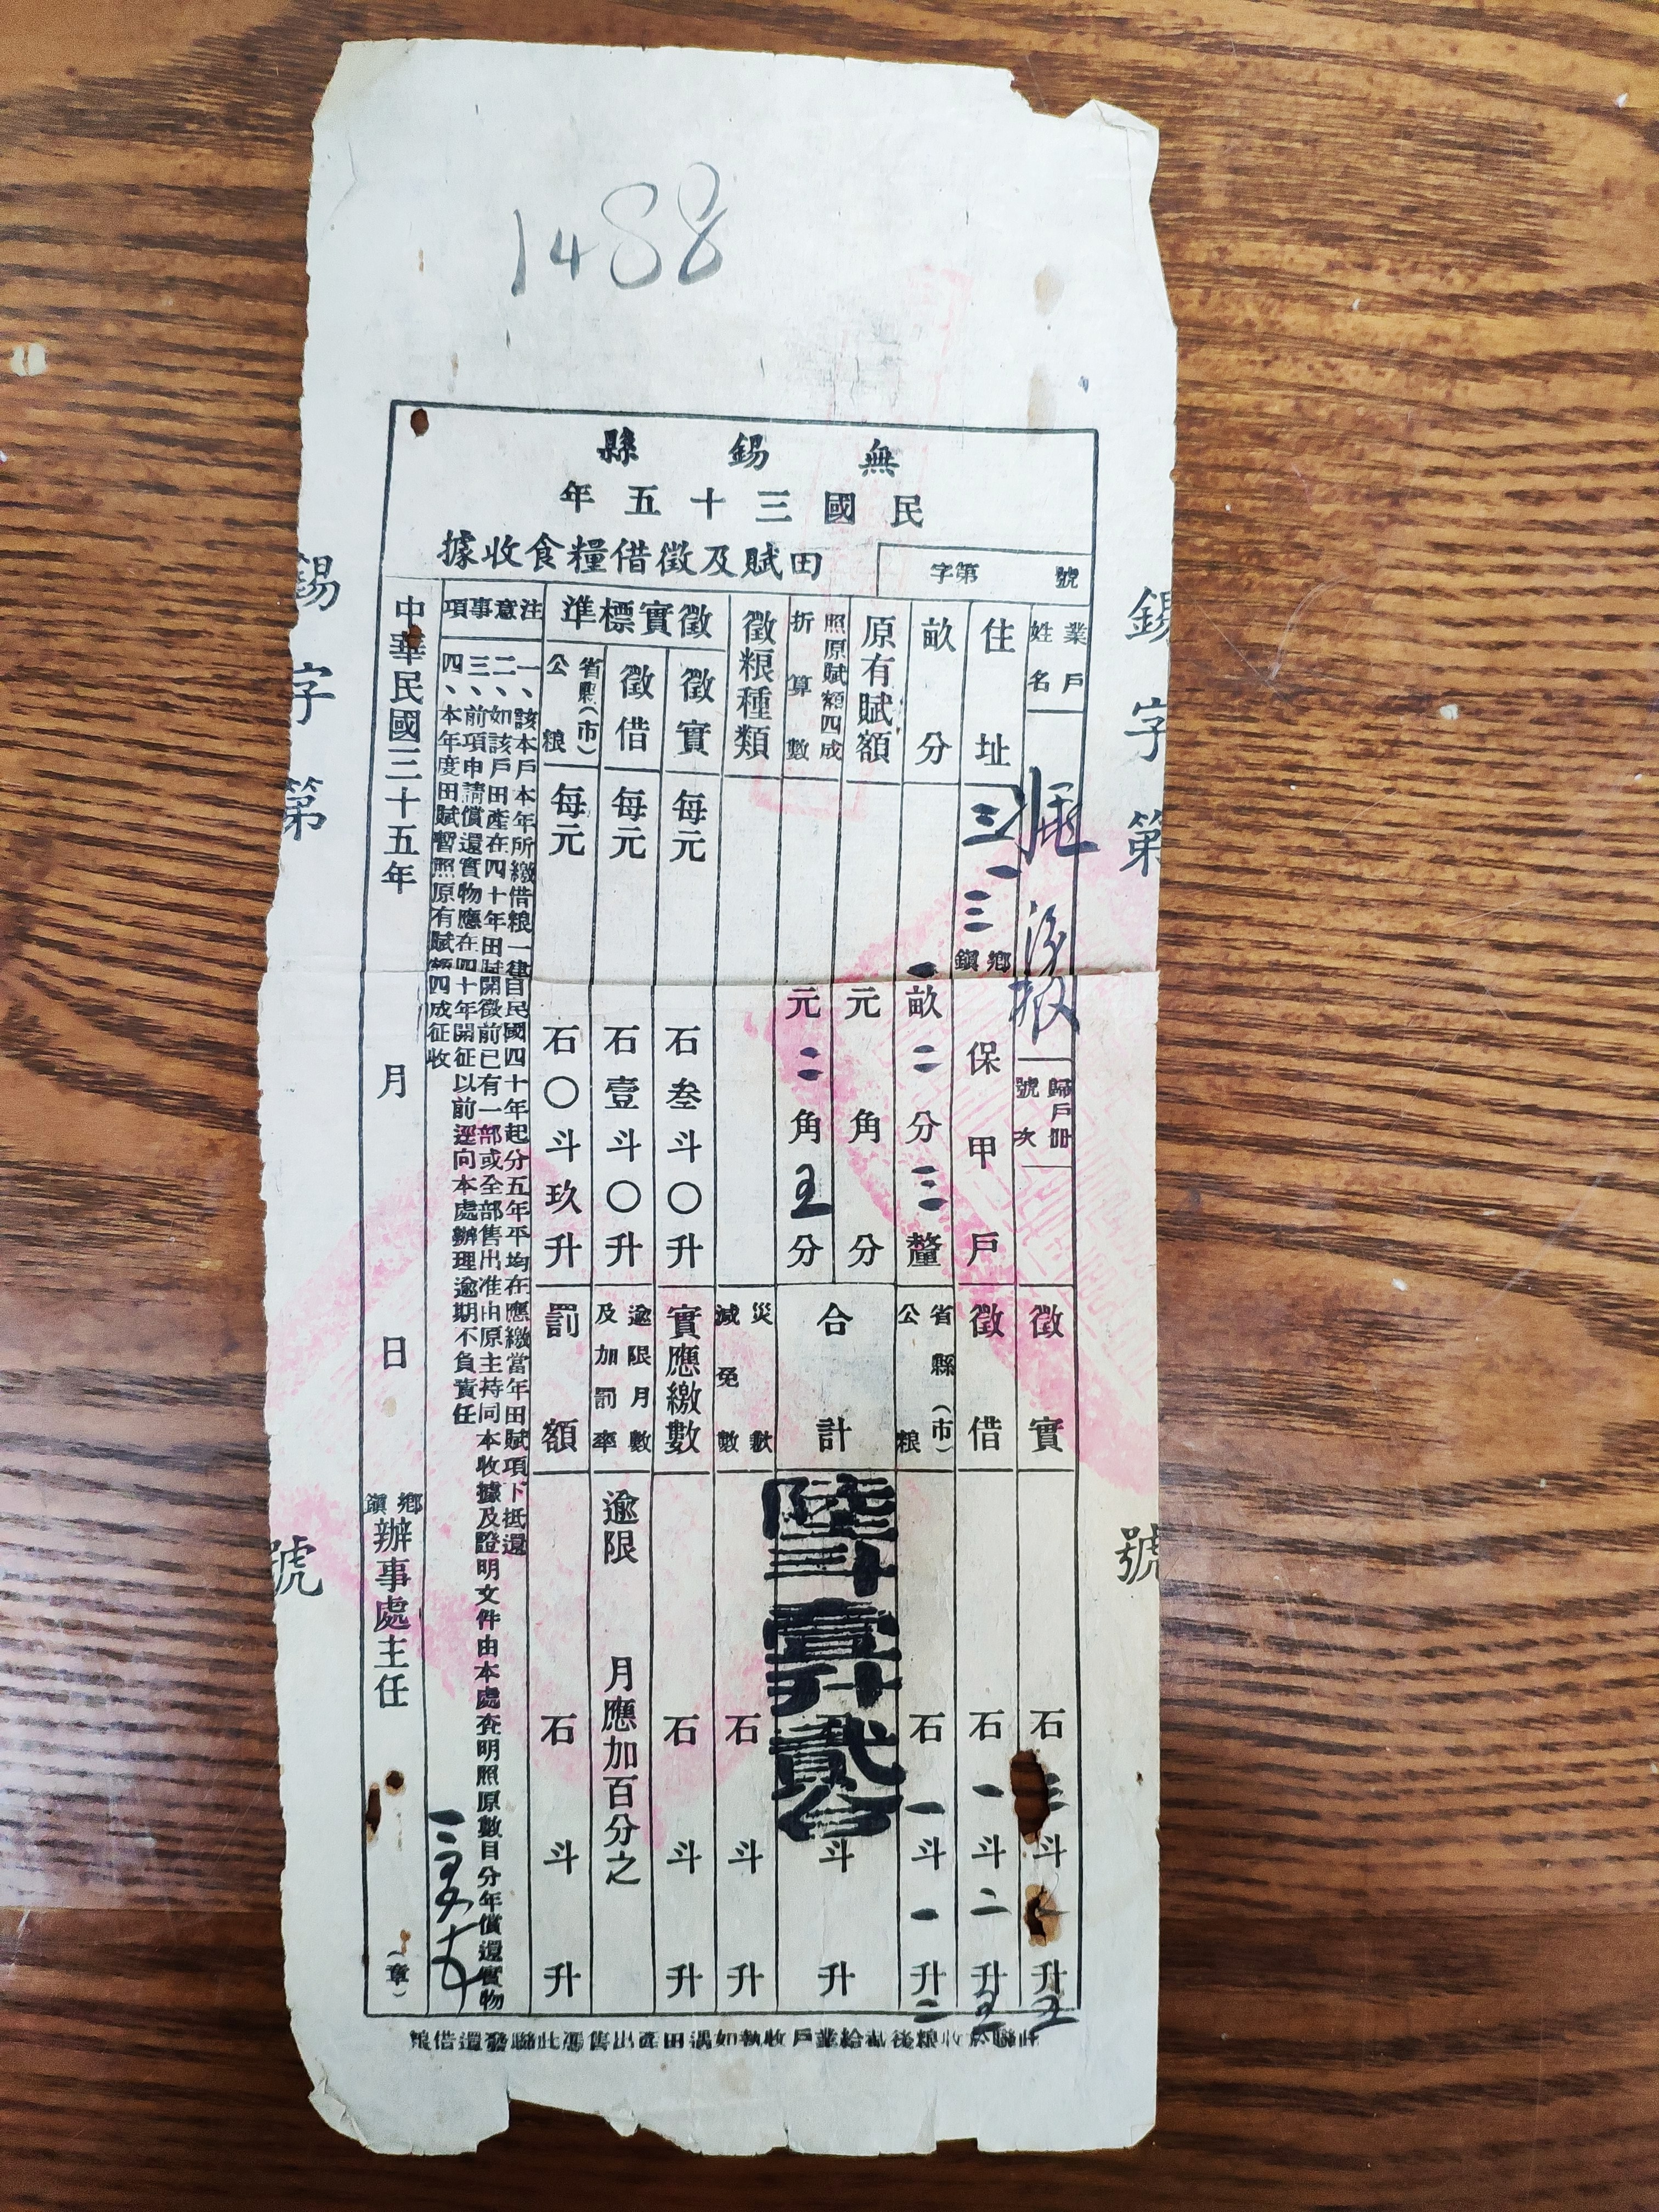 1488
無錫縣
民國三十五年
田賦及徵借糧食收據
字第 號
錫字第 號
業戶姓名
歸戶冊號次
住址 三一三 鄉鎮 保 甲 戶
畝分 一畝二分三釐
原有賦額 元 角 分
照原賦額四成折算數 元二角五分
徵粮種類
徵實標準
徵實 每元 石叁斗〇升
徵借 每元 石壹斗〇升
省縣(市)公粮 每元 石〇斗玖升
徵實 石三斗 升五
徵借 石一斗二升五
省縣(市)公粮 石一斗一升二
合計 陸斗壹升貳合 斗 升
災歉減免數 石 斗 升
實應繳數 石 斗 升
逾限月數及加罰率 逾限 月應加百分之
罰額 石 斗 升
注意事項
一、該本戶本年所繳借粮一律自民國四十年起分五年平均在應繳當年田賦項下抵還
二、如該戶田產在四十年田賦開徵前已有一部或全部售出准由原主持同本收據及證明文件由本處查明照原數目分年償還實物
三、前項申請償還實物應在四十年開征以前逕向本處辦理逾期不負責任
四、本年度田賦暫照原有賦額四成征收
中華民國三十五年 月 日
鄉鎮辦事處主任 (章)
此聯於收粮後截給業戶收執如遇田產出售憑此聯發還借粮
錫字第 號